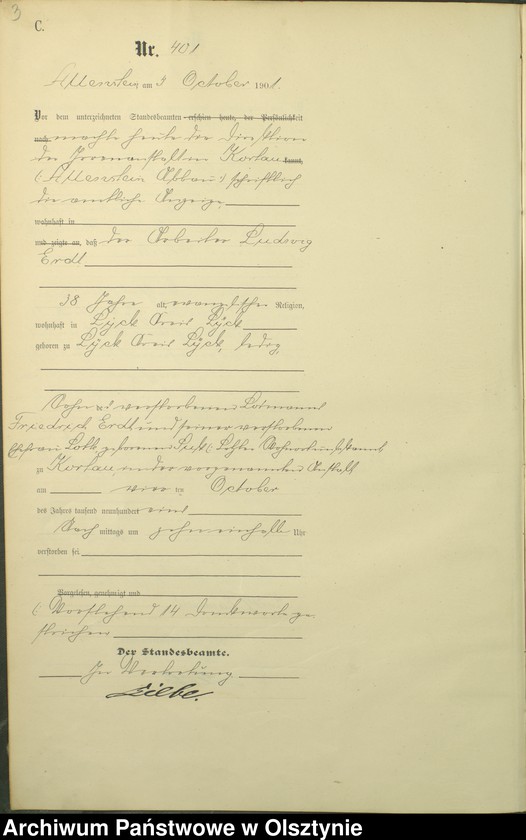 3
C.
Nr. 401
Allenstein am 5 October 1901.
Vor dem unterzeichneten Standesbeamten erschien heute, der Persönlichkeit
nach machte heute die Direktion
der Irrenanstalten Kortau kannt,
(Allenstein Abbau) schriftlich
die amtliche Anzeige
wohnhaft in
und zeigte an, daß der Arbeiter Ludwig
Erdt
38 Jahre alt, evangelischer Religion,
wohnhaft in Lyck Kreis Lyck
geboren zu Lyck Kreis Lyck, ledig,
Sohn des verstorbenen Losmanns
Friedrich Erdt und seiner verstorbenen
Ehefrau geborenen
zu Kortau in der vorgenannten Anstalt
am vier ten October
des Jahres tausend neunhundert eins
Nach mittags um zehn einhalb Uhr
verstorben sei
Vorgelesen, genehmigt und
(Vorstehend 14 Druckworte ge-
strichen
Der Standesbeamte.
In Vertretung
Archiwum Państwowe w Olsztynie